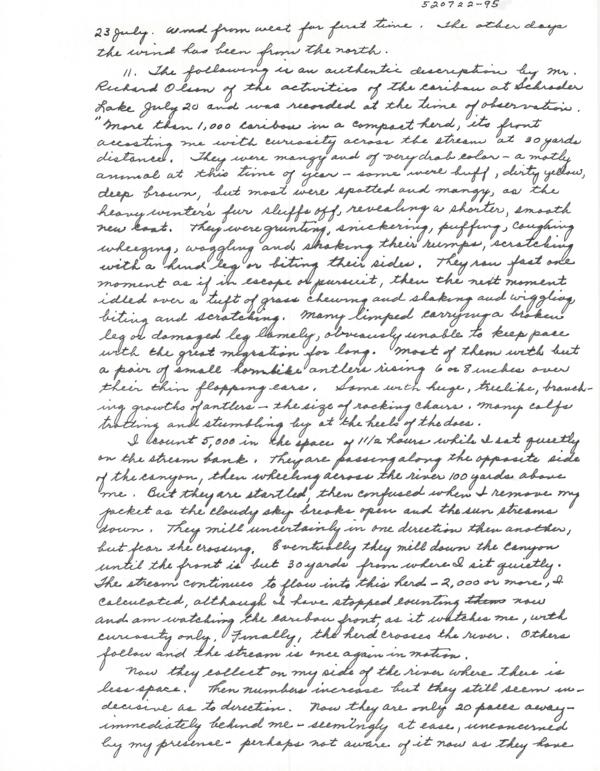 520722-95
23 July. Wind from west for first time. The other days
the wind has been from the north.
11. The following is an authentic description by Mr.
Richard Olson of the activities of the caribou at Schrader
Lake July 20 and was recorded at the time of observation.
"More than 1,000 caribou in a compact herd, its front
accosting me with curiosity across the stream at 30 yards
distance. They were mangy and of very drab color - a motly
animal at this time of year - some were buff, dirty yellow,
deep brown, but most were spotted and mangy, as the
heavy winter's fur sluffs off, revealing a shorter, smooth
new coat. They were grunting, snickering, puffing, coughing
wheezing, waggling and shaking their rumps, scratching
with a hind leg or biting their sides. They ran fast one
moment as if in escape or pursuit, then the next moment
idled over a tuft of grass chewing and shaking and wiggling
biting and scratching. Many limped carrying a broken
leg or damaged leg lamely, obviously unable to keep pace
with the great migration for long. Most of them with but
a pair of small hornlike antlers rising 6 or 8 inches over
their thin flopping ears. Some with huge, treelike, branch-
ing growths of antlers - the size of rocking chairs. Many calfs
trotting and stumbling by at the heels of the does.
I count 5,000 in the space of 1 1/2 hours while I sat quietly
on the stream bank. They are passing along the opposite side
of the canyon, then wheeling across the river 100 yards above
me. But they are startled, then confused when I remove my
jacket as the cloudy sky breaks open and the sun streams
down. They mill uncertainly in one direction then another,
but fear the crossing. Eventually they mill down the canyon
until the front is but 30 yards from where I sit quietly.
The stream continues to flow into this herd - 2,000 or more, I
calculated, although I have stopped counting now
and am watching the caribou front, as it watches me, with
curiosity only. Finally, the herd crosses the river. Others
follow and the stream is once again in motion.
Now they collect on my side of the river where there is
less space. Then numbers increase but they still seem in-
decisive as to direction. Now they are only 20 paces away -
immediately behind me - seemingly at ease, unconcerned
by my presense - perhaps not aware of it now as they have